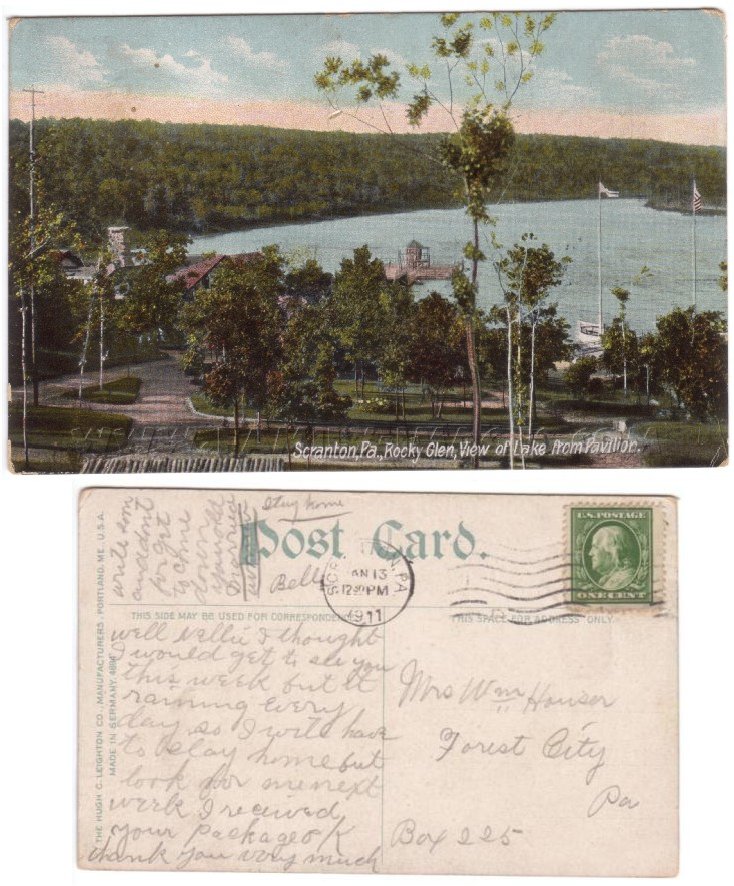 Scranton, Pa., Rocky Glen, View of Lake from Pavilion.
write soon
and don't
forget
to come
down
you old
married
Stay home
Belle
Post Card.
SCRANTON, PA
JAN 13
12 PM
1911
U.S. POSTAGE
ONE CENT
THIS SIDE MAY BE USED FOR CORRESPONDENCE
THIS SPACE FOR ADDRESS ONLY.
THE HUGH C. LEIGHTON CO., MANUFACTURERS, PORTLAND, ME. U.S.A.
MADE IN GERMANY.
well Nellie I thought
I would get to see you
this week but it
raining every
day so I will have
to stay home but
look for me next
week I received
your package O K
thank you very much
Mrs Wm Houser
Forest City
Pa
Box 225